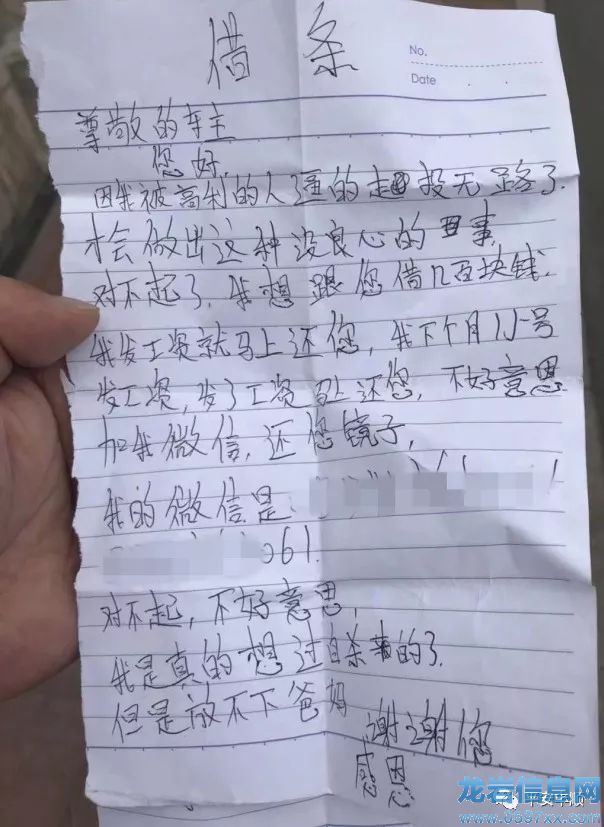 借条
No.
Date
尊敬的车主
您好.
因我被高利的人逼的走投无路了.
才会做出这种没良心的事,
对不起了.我想跟您借几百块钱.
我发工资就马上还您,我下个月15号
发工资,发了工资马上还您,不好意思
加我微信,还您镜子,
我的微信是:
061.
对不起,不好意思,
我是真的想过自杀的了.
但是放不下爸妈
谢谢您.
感恩
龙岩信息网
www.0597xx.com